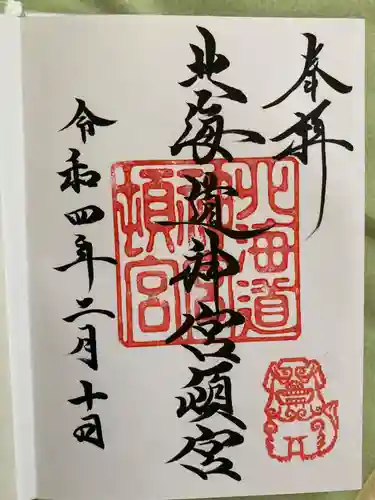 奉拝
北海道神宮頓宮
令和四年二月十四日
北海道
神宮
頓宮